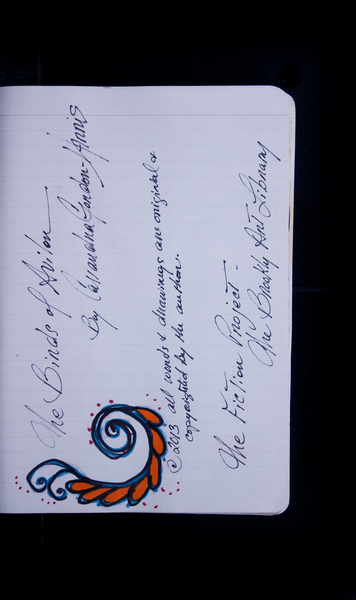 The Birds of Avilon
By Cassandra Gordon-Harris
© 2013 all words & drawings are original &
copyrighted by the author.
The Fiction Project -
The Brooklyn Art Library